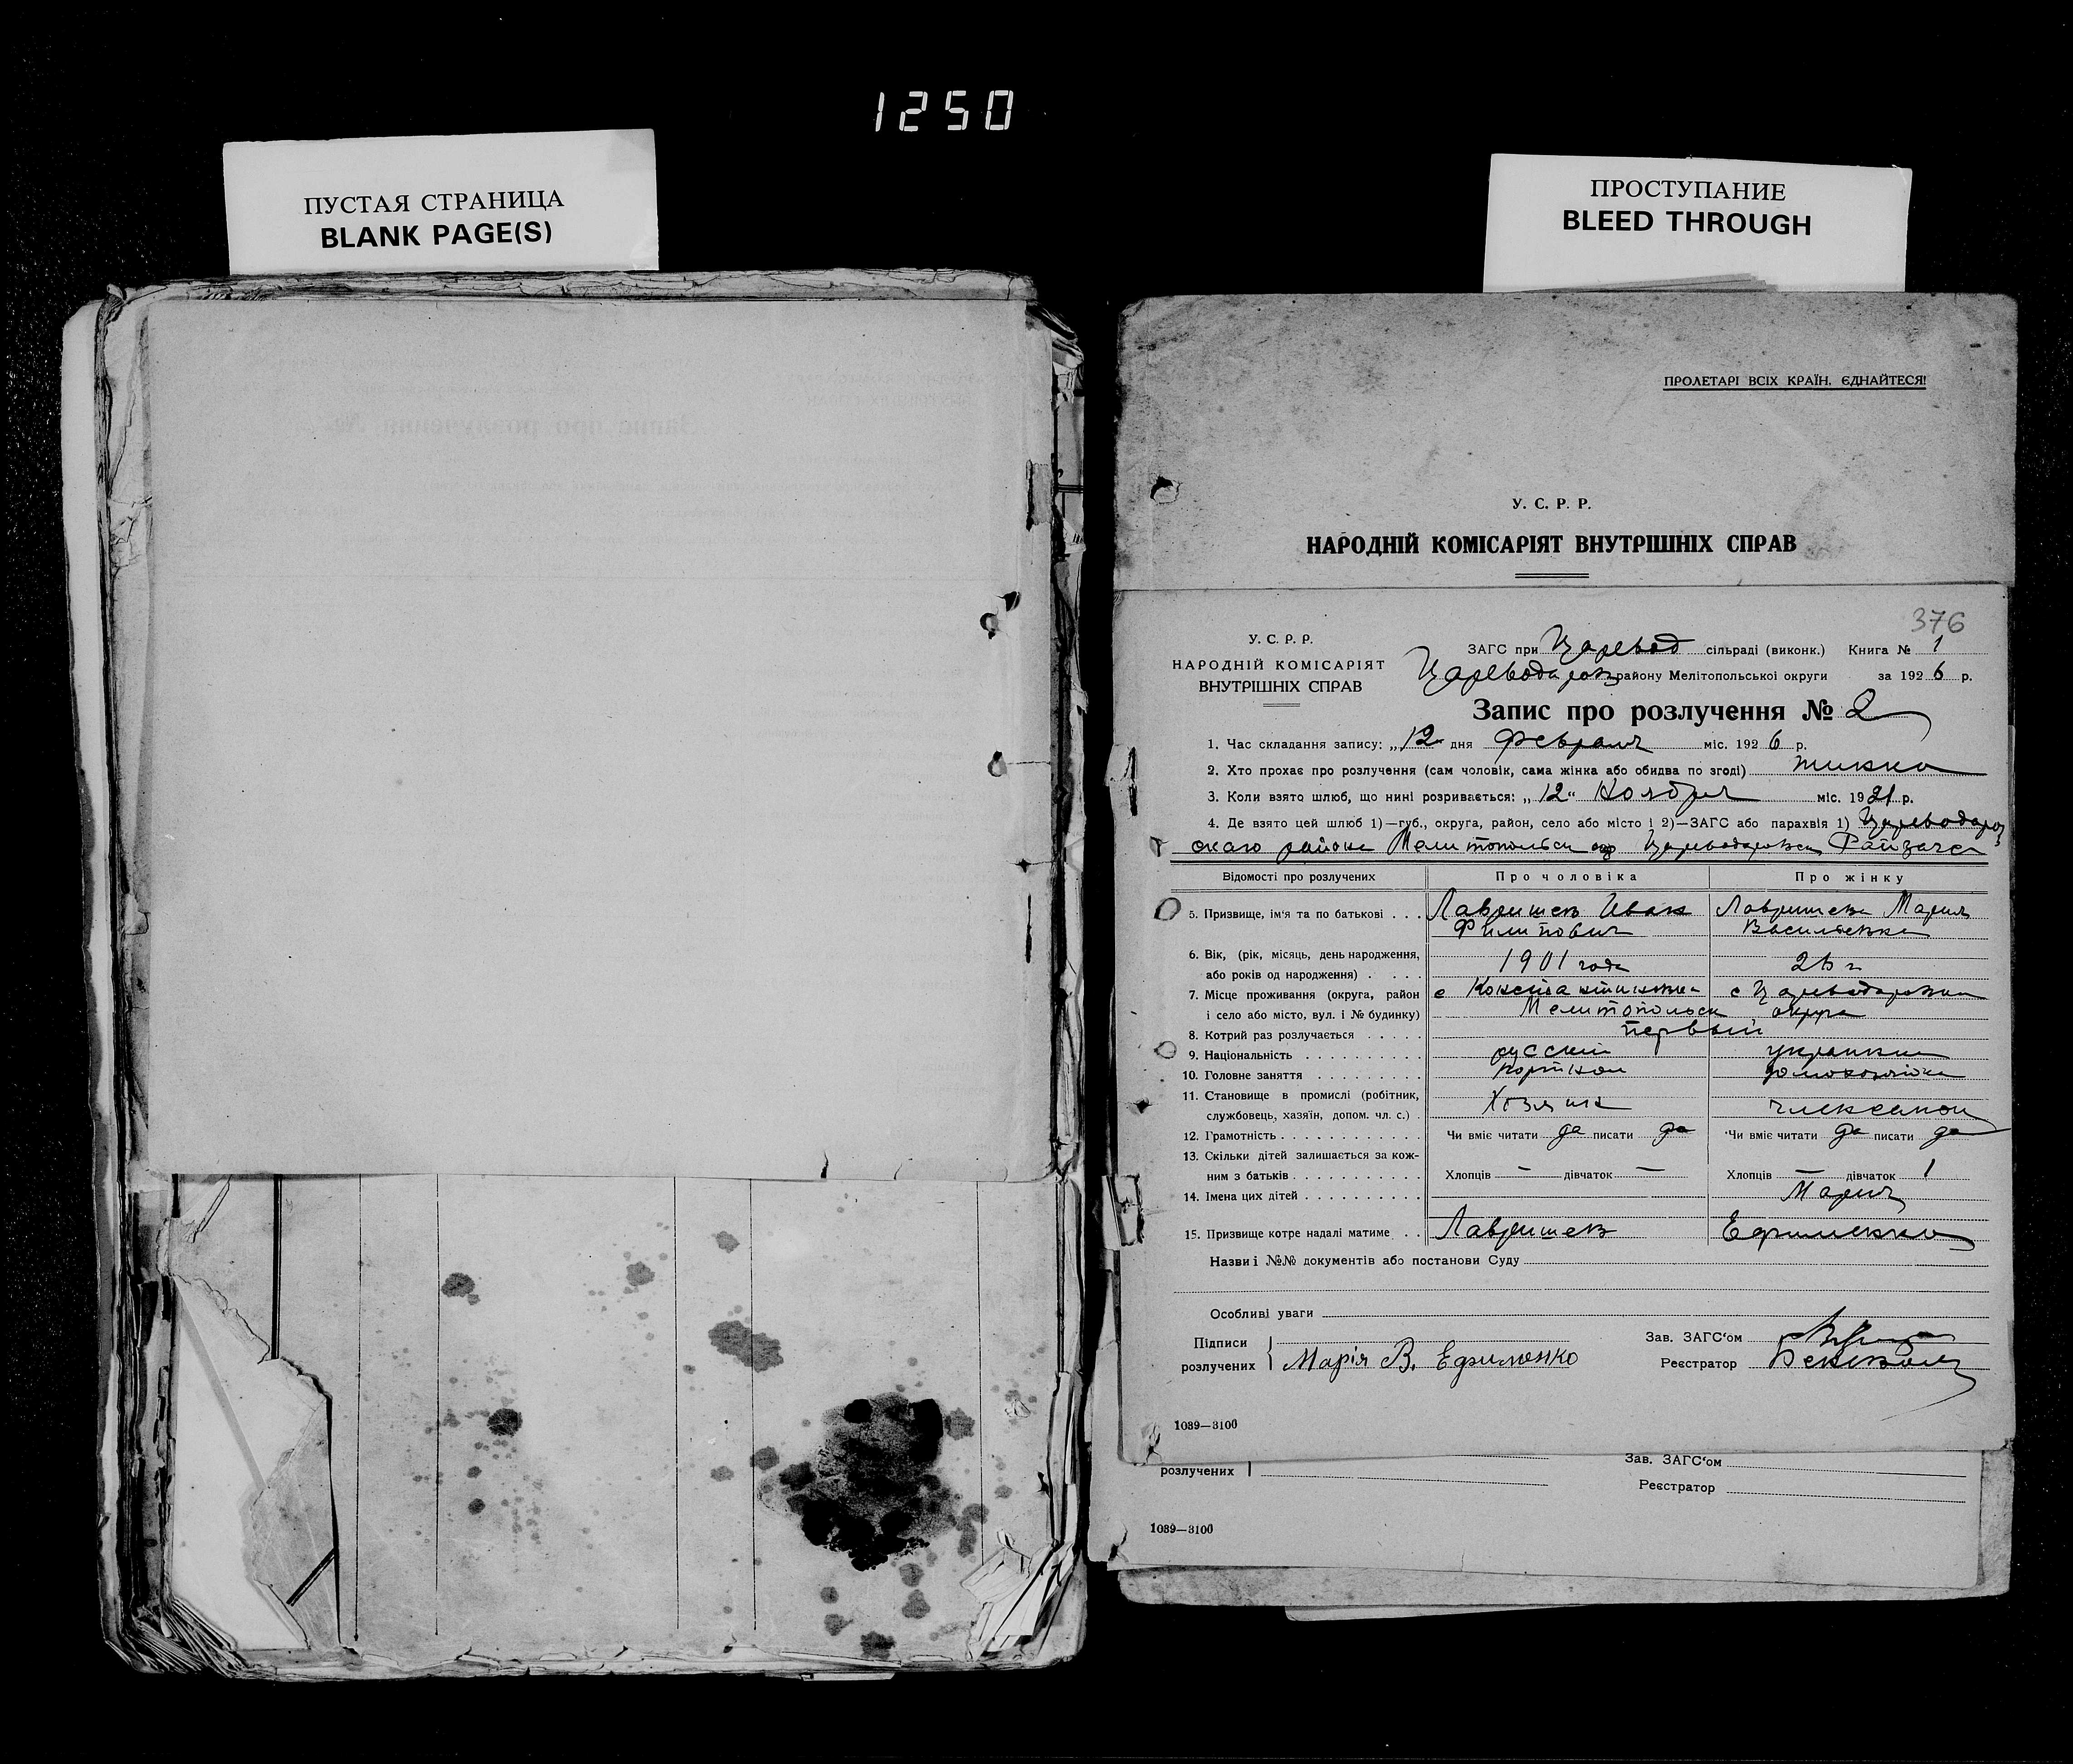 1250
ПУСТАЯ СТРАНИЦА
BLANK PAGE(S)
ПРОСТУПАНИЕ
BLEED THROUGH
ПРОЛЕТАРІ ВСІХ КРАЇН, ЄДНАЙТЕСЯ!
У. С. Р. Р.
НАРОДНІЙ КОМІСАРІЯТ ВНУТРІШНІХ СПРАВ
376
У. С. Р. Р.
НАРОДНІЙ КОМІСАРІЯТ
ВНУТРІШНІХ СПРАВ
ЗАГС при Царевод сільраді (виконк.) Книга № 1
району Мелітопольської округи за 1926 р.
Запис про розлучення № 2
1. Час складання запису: „12" дня Февраля міс. 1926 р.
2. Хто прохає про розлучення (сам чоловік, сама жінка або обидва по згоді)
3. Коли взято шлюб, що нині розривається: „12" Ноября міс. 1921 р.
4. Де взято цей шлюб 1)—губ., округа, район, село або місто і 2)—ЗАГС або парахвія 1) Цареводаров
скаго района Мелитопольск Райзагс
Відомості про розлучених Про чоловіка Про жінку
5. Призвище, ім'я та по батькові . . . Лавришев Иван Лавришева Мария
Филипович Васильевна
6. Вік, (рік, місяць, день народження,
або років од народження) . . . . 1901 года
7. Місце проживання (округа, район с Константиновка с Цареводаровка
і село або місто, вул. і № будинку) Мелитопольск округа
8. Котрий раз розлучається . . . . . первый
9. Національність . . . . . . . . . . русский украинка
10. Головне заняття . . . . . . . . . портной домохозяйка
11. Становище в промислі (робітник,
службовець, хазяїн, допом. чл. с.) . Хозяин член семьи
12. Грамотність . . . . . . . . . . . . Чи вміє читати да писати да Чи вміє читати да писати да
13. Скільки дітей залишається за кож-
ним з батьків . . . . . . . . . . . Хлопців — дівчаток — Хлопців — дівчаток 1
14. Імена цих дітей . . . . . . . . . . Мария
15. Призвище котре надалі матиме . . Лавришев Ефименко
Назви і №№ документів або постанови Суду
Особливі уваги
Підписи
розлучених Марія В. Ефименко
Зав. ЗАГС'ом
Реєстратор
1039—3100
розлучених
Зав. ЗАГС'ом
Реєстратор
1039—3100